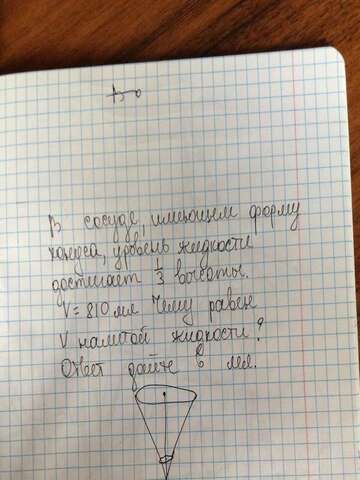 В сосуде, имеющем форму
конуса, уровень жидкости
достигает 1/3 высоты.
V = 810 мл Чему равен
V налитой жидкости?
Ответ дайте в мл.